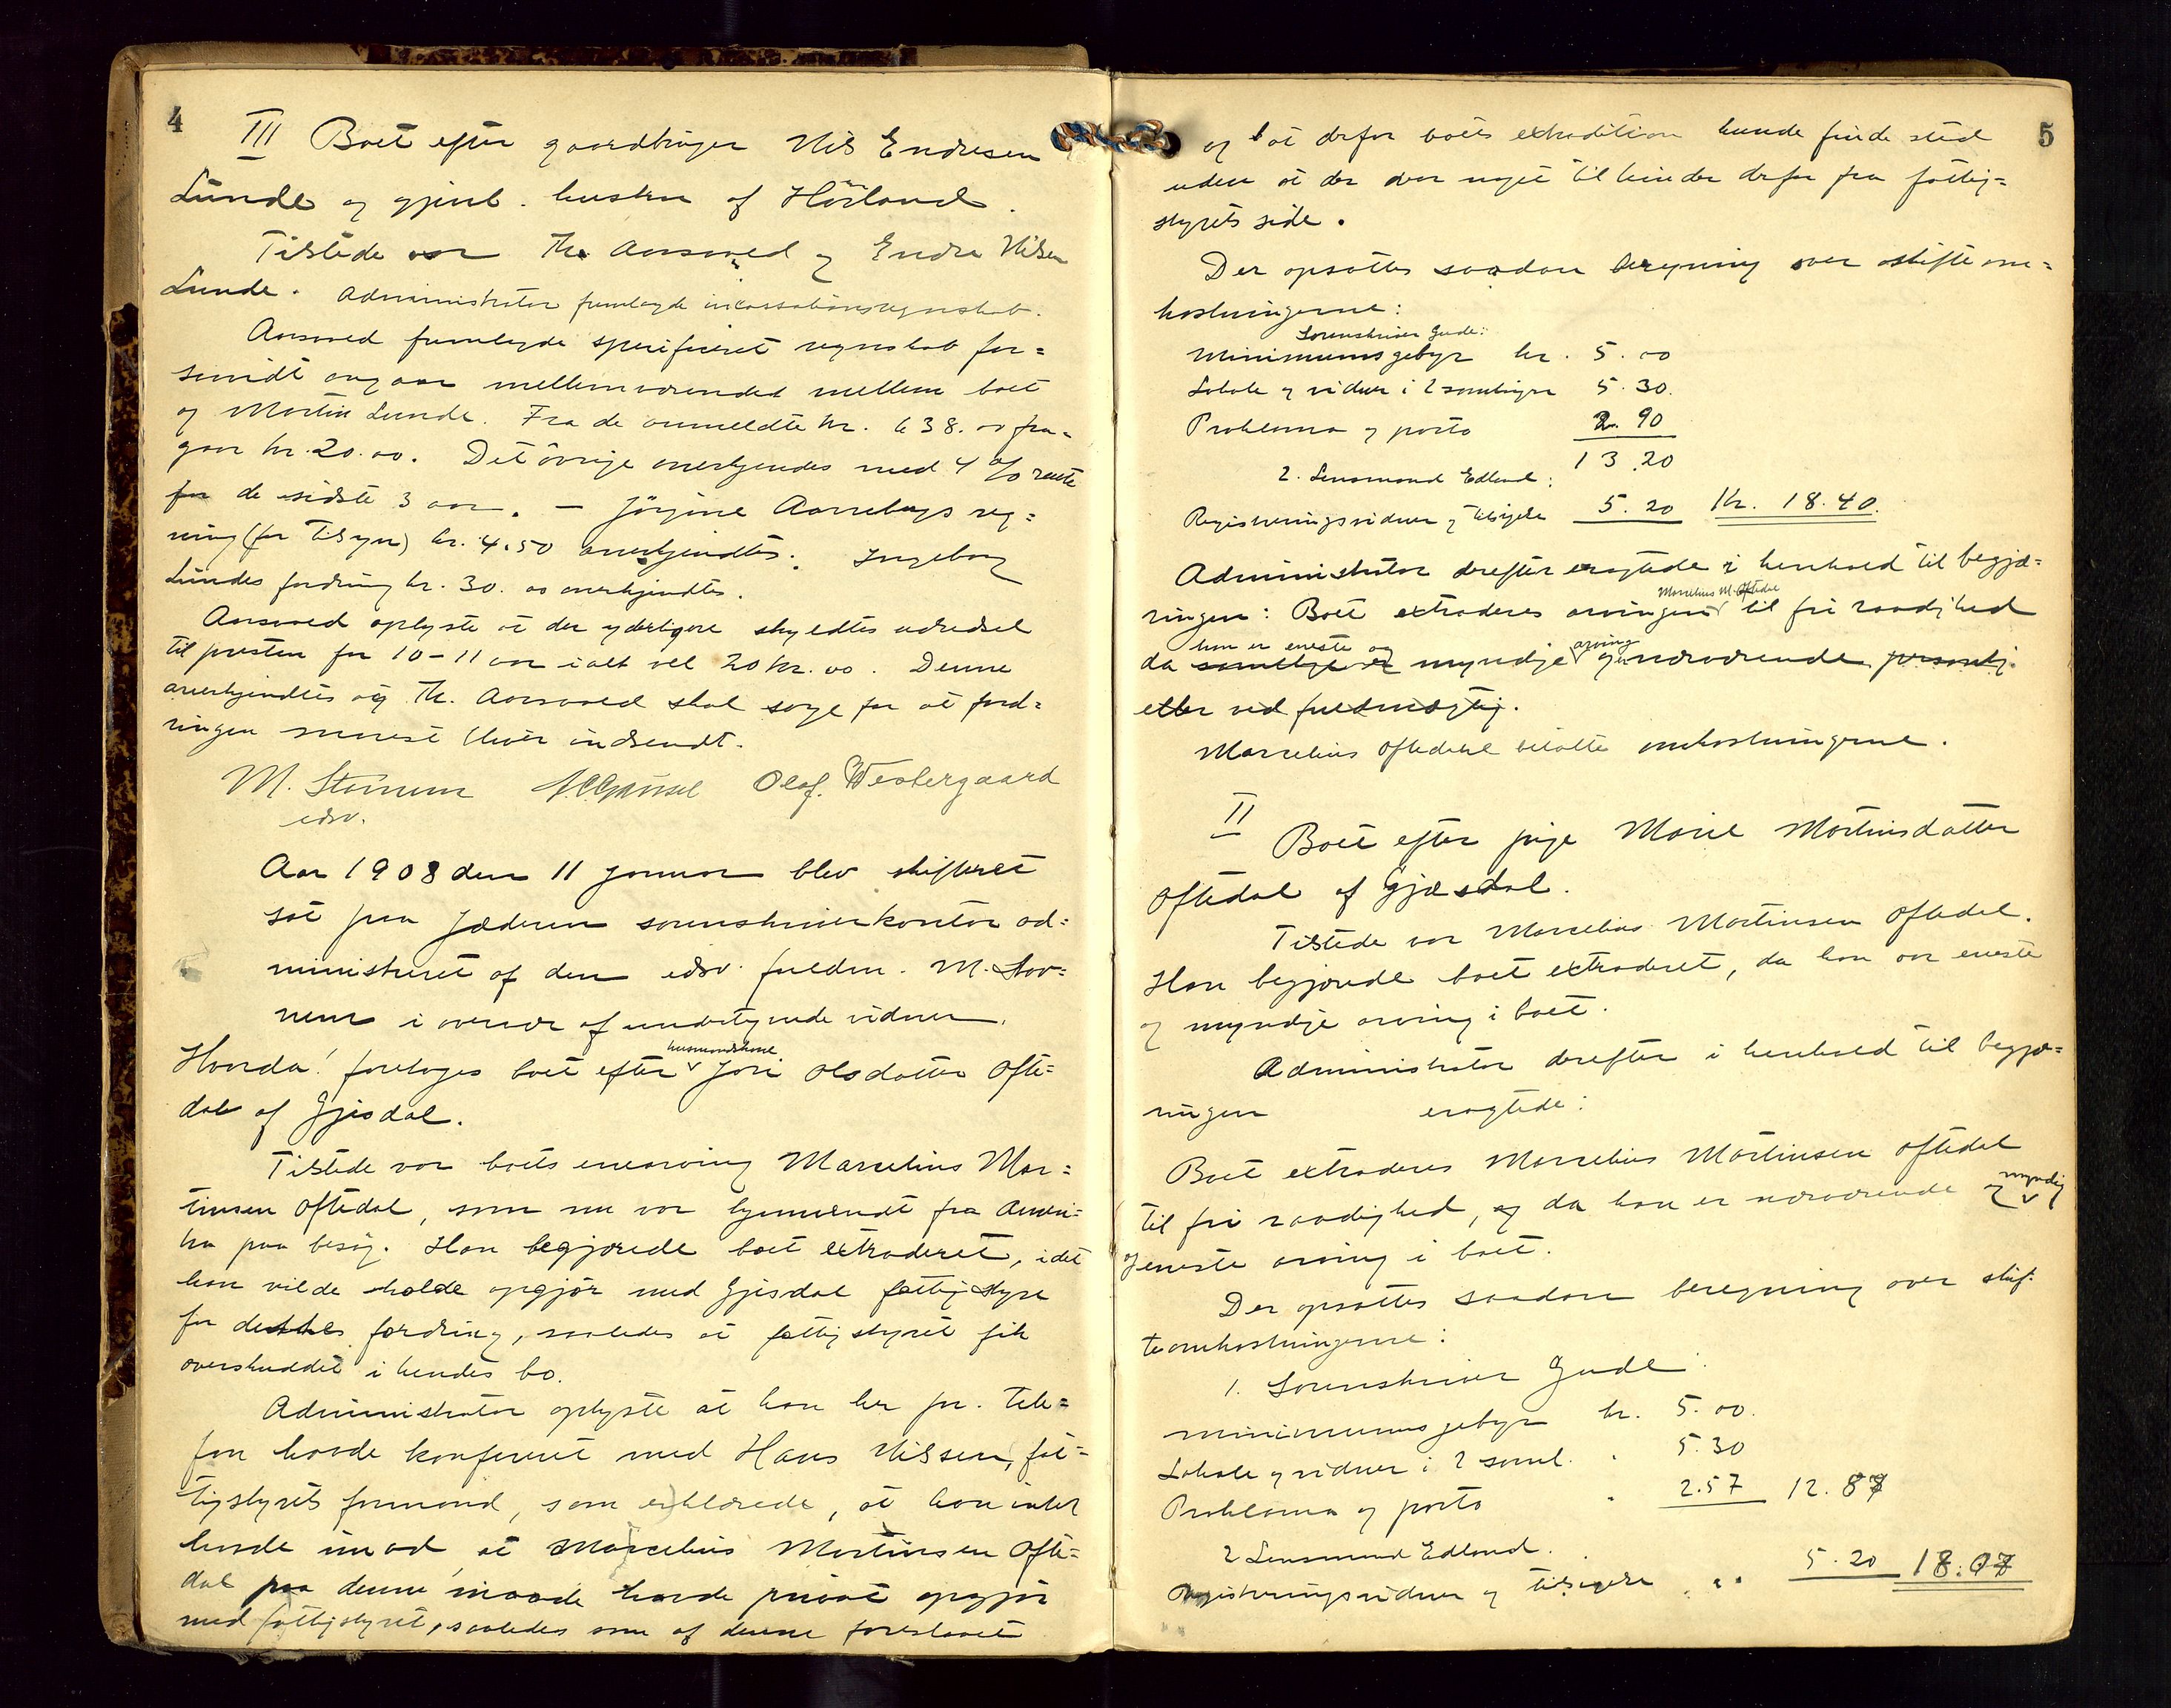 4
III Boet efter gaardbruger Nils Endresen
Lunde og gjenl. hustru af Hörland.
Tilstede var Th. Aarsvold og Endre Nilsen
Lunde. Administrator fremlagde incassationsregnskab.
Aarsvold fremlagde specificeret regnskab for=
saavidt angaar mellemværendet mellem boet
og Martin Lunde. Fra de anmeldte kr. 638.00 fra=
gaar kr. 20.00. Det övrige anerkjendes med 4 % rente
for de sidste 3 aar. – Jörgine Aarrebergs reg=
ning (for tilsyn) kr. 4.50 anerkjendtes. Ingeborg
Lundes fordring kr. 30.00 anerkjendtes.
Aarsvold oplyste at der yderligere skyldtes udredsel
til presten for 10-11 aar ialt vel 20 kr. 00. Denne
anerkjendtes og Th. Aarsvold skal sørge for at ford=
ringen snarest bliver indsendt.
M. Stornem Olaf. Westergaard
edsv.
Aar 1908 den 11 januar blev skifteret
sat paa Jæderen sorenskriverkontor ad=
ministreret af den edsv. fuldm. M. Stor=
nem i overvær af undertegnede vidner.
husmandskone
Hvorda! foretoges boet efter Jori Olsdatter Ofte=
dal af Gjesdal.
Tilstede var boets enearving Marselius Mar=
tinsen Oftedal, som nu var hjemvendt fra Ameri=
ka paa besøg. Han begjærede boet extraderet, idet
han vilde holde opgjør med Gjesdal fattigstyre
for dettes fordring, saaledes at fattigstyret fik
overskuddet i hendes bo.
Administrator oplyste at han her pr. tele=
fon havde konfereret med Hans Nilssen, fat=
tigstyrets formand, som erklærede, at han intet
havde imod at Marcelius Martinsen Ofte=
dal paa denne maade havde privat opgjør
med fattigstyret, saaledes som af denne foreslaaet
5
og at derfor boets extradition kunde finde sted
uden at der var noget til hinder derfor fra fattig=
styrets side.
Der opsattes saadan beregning over skifteom=
kostningerne:
Sorenskriver Gude:
Minimumsgebyr kr. 5.00
Lokale og vidner i 2 samlinger 5.30.
Proklama og porto 2.90
13.20
2. Lensmand Edland:
Registreringsvidner og tilsigelse 5.20 Kr. 18.40.
Administrator derefter eragtede i henhold til begjæ=
Marselius M. Oftedal
ringen: Boet extraderes arvingen til fri raadighed
han er eneste og arving
da samtlige er myndige og nærværende personlig
eller ved fuldmægtig.
Marcelius Oftedal betalte omkostningerne.
II
Boet efter pige Marie Martinsdatter
Oftedal af Gjæsdal.
Tilstede var Marcelius Martinsen Oftedal.
Han begjærede boet extraderet, da han var eneste
og myndige arving i boet.
Administrator derefter i henhold til begjæ=
ringen eragtede:
Boet extraderes Marcelius Martinsen Oftedal
til fri raadighed, og da han er nærværende og myndig
og eneste arving i boet.
Der opsattes saadan beregning over skif=
teomkostningerne:
1. Sorenskriver Gude
minimumsgebyr kr. 5.00.
Lokale og vidner i 2 saml. " 5.30
Proklama og porto " 2.57 12.87
2 Lensmand Edland.
Registreringsvidner og tilsigelse " " 5.20 18.07